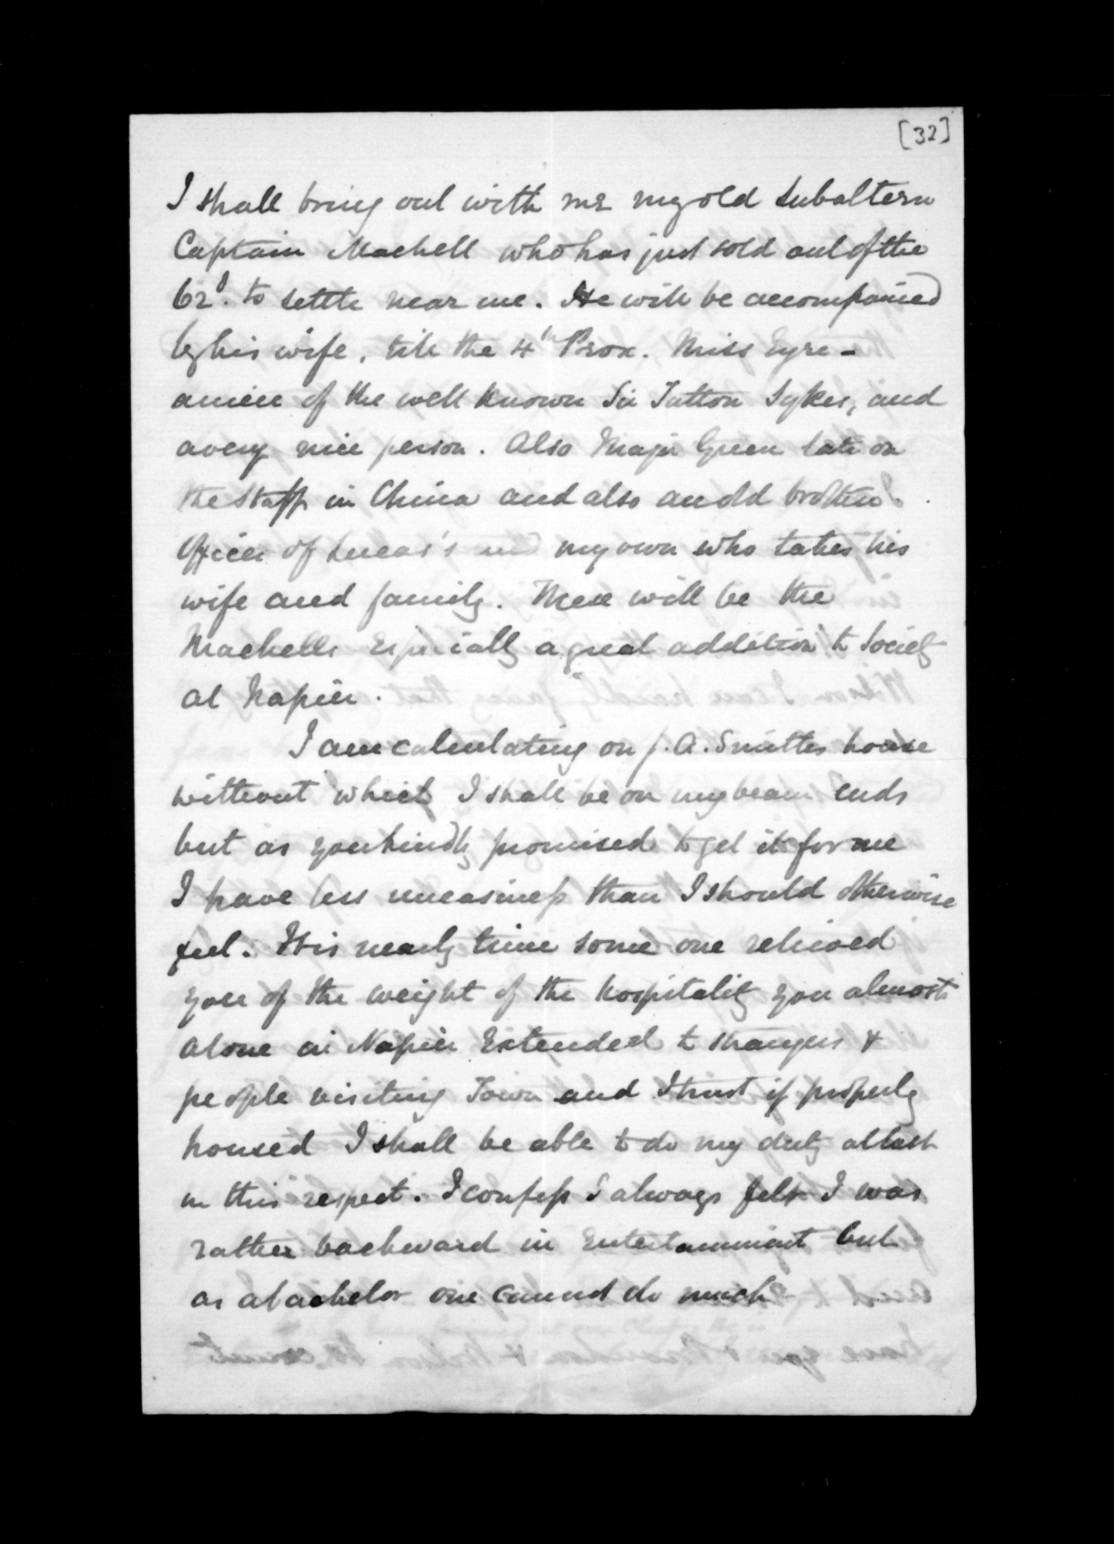 [32]
I shall bring out with me my old Subaltern
Captain Machell who has just sold out of the
62d. to settle near me. He will be accompanied
by his wife, till the 4th Prox. Miss Eyre -
a niece of the well known Sir Tatton Sykes, and
a very nice person. Also Major Green late on
the Staff in China and also an old brother
Officer of Lucas's and my own who takes his
wife and family. These will be the
Machells especially a great addition to Society
at Napier.
I am calculating on J. A. Smiths house
without which I shall be on my beam ends
but as you kindly promised to get it for me
I have less uneasiness than I should otherwise
feel. It is nearly time some one relieved
you of the weight of the hospitality you almost
alone in Napier Extended to strangers &
people visiting Town and I trust if properly
housed I shall be able to do my duty at last
in this respect. I confess I always felt I was
rather backward in Entertainment but
as a bachelor one cannot do much